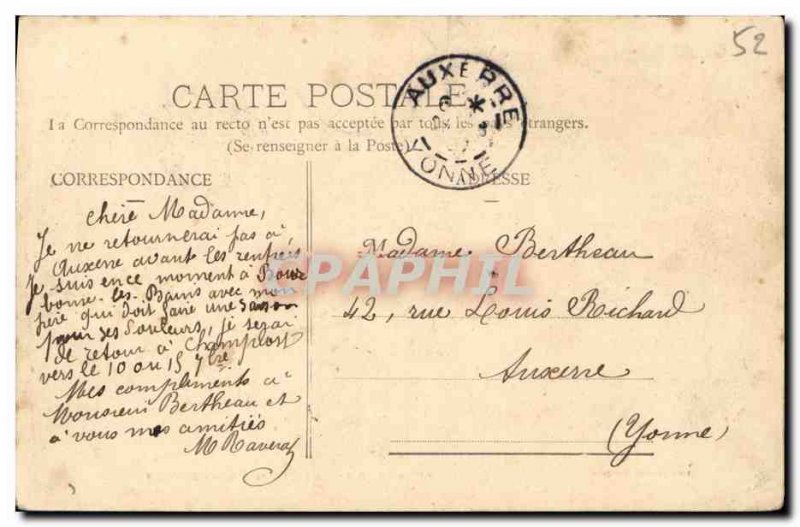 52
CARTE POSTALE
La Correspondance au recto n'est pas acceptée par tous les pays étrangers.
(Se renseigner à la Poste)
AUXERRE
YONNE
CORRESPONDANCE
ADRESSE
chère Madame,
Je ne retournerai pas à
Auxerre avant les rentrées
Je suis en ce moment à Bour
bonne-les-Bains avec mon
père qui doit faire une saison
pour ses douleurs, je serai
de retour à Champlost
vers le 10 ou 15 7bre
Mes compliments à
Monsieur Bertheau et
à vous mes amitiés
M Raverat
Madame Bertheau
42, rue Louis Richard
Auxerre
(Yonne)
CPAPHIL